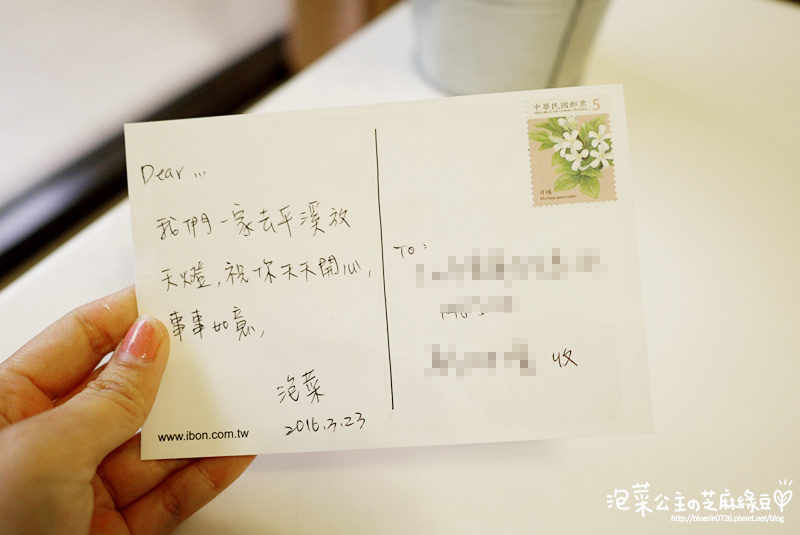 Dear...
我們一家去平溪放
天燈,祝你天天開心,
事事如意,
泡菜
2016.3.23
www.ibon.com.tw
中華民國郵票 5
月橘
To:
收
泡菜公主の芝麻綠豆
http://bluerin0726.pixnet.net/blog